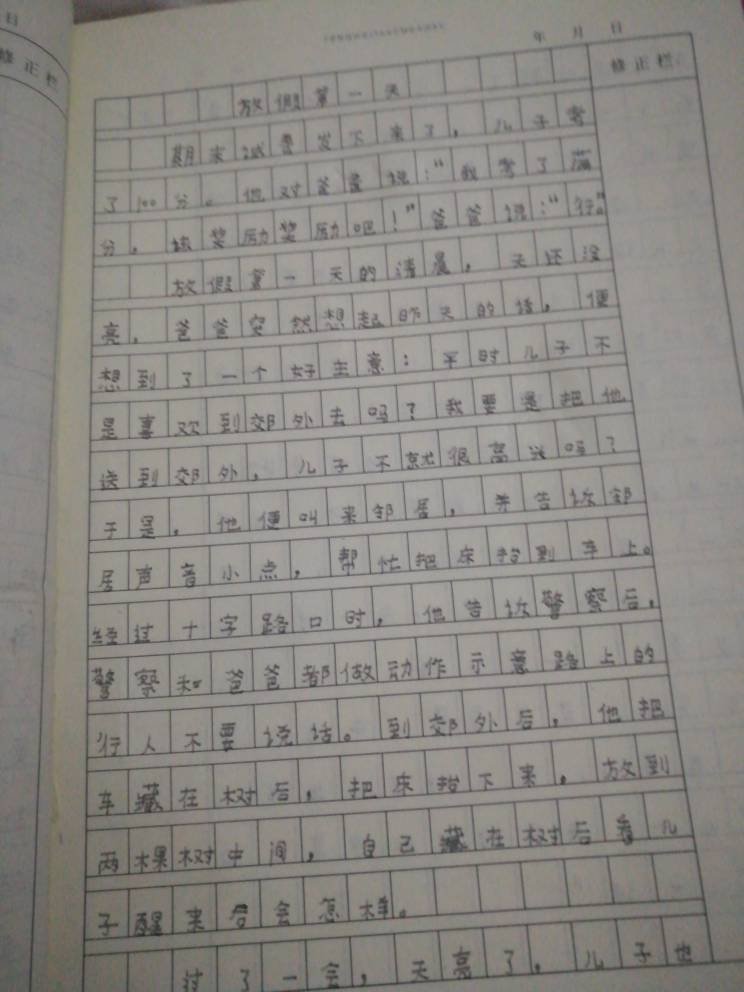 日
修正栏
年 月 日
修正栏:
放假第一天
期末试卷发下来了,儿子考
了100分。他对爸爸说:“我考了满
分,该奖励奖励吧!”爸爸说:“行。”
放假第一天的清晨,天还没
亮,爸爸突然想起昨天的话,便
想到了一个好主意:平时儿子不
是喜欢到郊外去吗?我要是把他
送到郊外,儿子不就很高兴吗?
于是,他便叫来邻居,并告诉邻
居声音小点,帮忙把床抬到车上。
经过十字路口时,他告诉警察后,
警察和爸爸都做动作示意路上的
行人不要说话。到郊外后,他把
车藏在树后,把床抬下来,放到
两棵树中间,自己藏在树后看儿
子醒来后会怎样。
过了一会,天亮了,儿子也